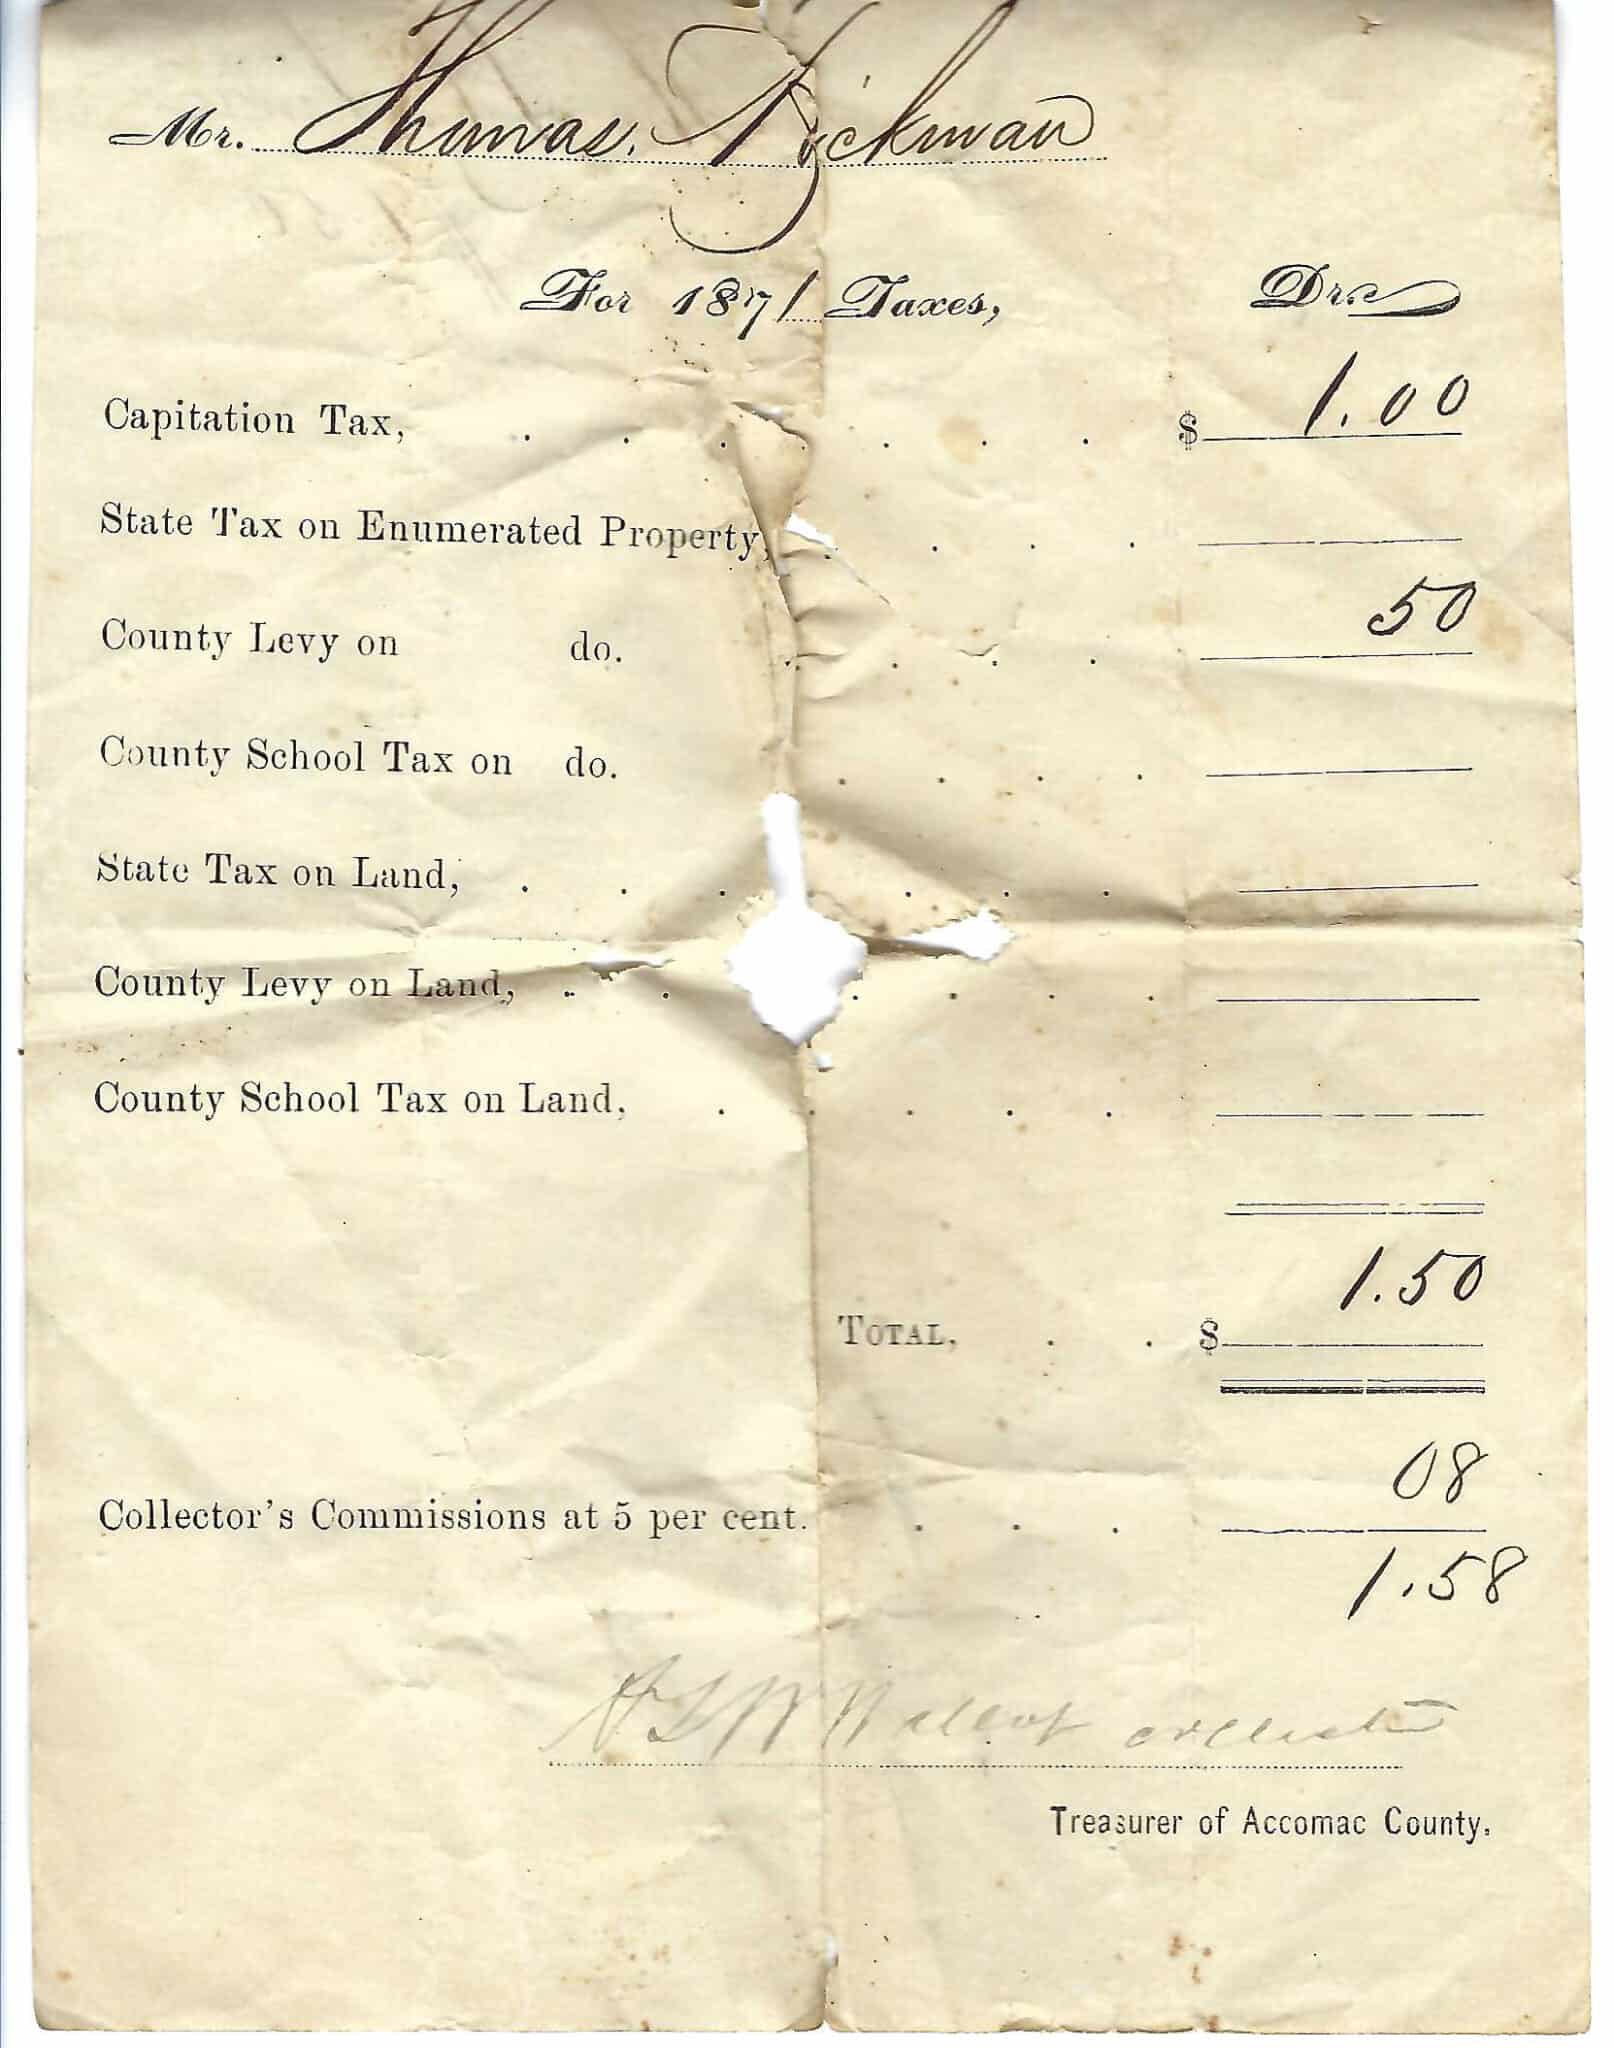 Mr. Thomas. Hickman
For 1871 Taxes, Dr.
Capitation Tax, . . . . . . $ 1.00
State Tax on Enumerated Property, . . . .
County Levy on do. . . . . 50
County School Tax on do. . . . .
State Tax on Land, . . . . . . .
County Levy on Land, . . . . . .
County School Tax on Land, . . . . .
TOTAL, . . $ 1.50
Collector's Commissions at 5 per cent. . . . 08
1.58
collector
Treasurer of Accomac County.